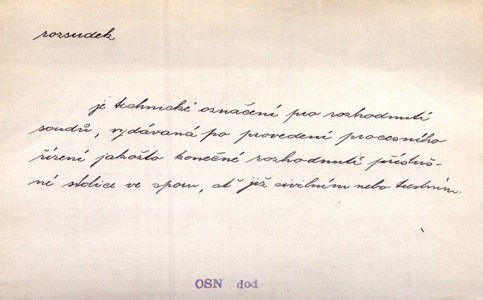 rozsudek
je technické označení pro rozhodnutí
soudů, vydávaná po provedení procesního
řízení jakožto konečné rozhodnutí přísluš-
né stolice ve sporu, ať již civilním nebo trestním.
OSN dod